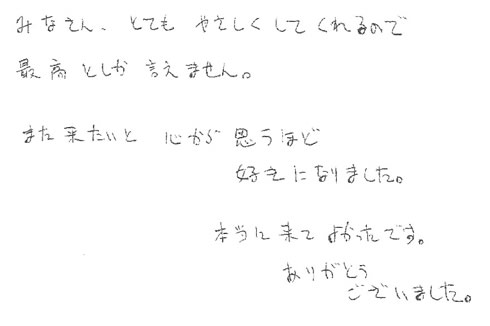 みなさん、とても やさしくしてくれるので
最高としか 言えません。
また来たいと 心から思うほど
好きになりました。
本当に来て よかったです。
ありがとう
ございました。